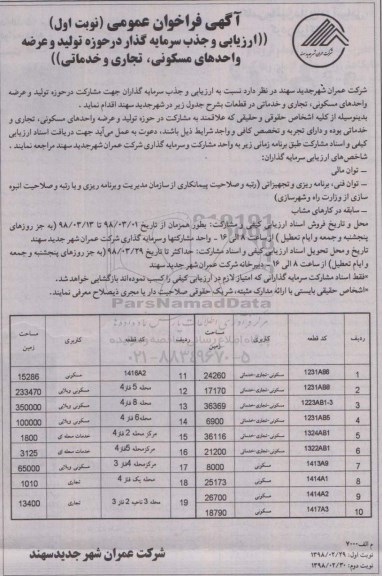 آگهی فراخوان عمومی (نوبت اول)
((ارزیابی و جذب سرمایه گذار درحوزه تولید و عرضه
واحدهای مسکونی، تجاری و خدماتی))
شرکت عمران شهرجدید سهند در نظر دارد نسبت به ارزیابی و جذب سرمایه گذاران جهت مشارکت درحوزه تولید و عرضه
واحدهای مسکونی، تجاری و خدماتی در قطعات بشرح جدول زیر در شهرجدید سهند اقدام نماید .
بدینوسیله از کلیه اشخاص حقوقی و حقیقی که علاقمند به مشارکت در حوزه تولید و عرضه واحدهای مسکونی، تجاری و
خدماتی بوده و دارای تجربه و تخصص کافی و واجد شرایط ذیل باشند، دعوت به عمل می‌آید جهت دریافت اسناد ارزیابی
کیفی و اسناد مشارکت طبق برنامه زمانی زیر به واحد مشارکت و سرمایه گذاری شرکت عمران شهر جدید سهند مراجعه نمایند .
شاخص‌های ارزیابی سرمایه گذاران:
– توان مالی
– توان فنی، برنامه ریزی و تجهیزاتی (رتبه و صلاحیت پیمانکاری از سازمان مدیریت و برنامه ریزی و یا رتبه و صلاحیت انبوه
سازی از وزارت راه وشهرسازی)
– سابقه در کارهای مشابه
محل و تاریخ فروش اسناد ارزیابی کیفی و مشارکت: بطور همزمان از تاریخ ۹۸/۰۳/۰۱ تا ۹۸/۰۳/۱۳ (به جز روزهای
پنجشنبه و جمعه و ایام تعطیل ) از ساعت ۸ الی ۱۶ – واحد مشارکتها و سرمایه گذاری شرکت عمران شهر جدید سهند
تاریخ و محل تحویل اسناد ارزیابی کیفی و اسناد مشارکت: حداکثر تا تاریخ ۹۸/۰۳/۲۹ (به جز روزهای پنجشنبه و جمعه
و ایام تعطیل) از ساعت ۸ الی ۱۶ – دبیرخانه شرکت عمران شهر جدید سهند
*فقط اسناد مشارکت سرمایه گذاری که امتیاز لازم در ارزیابی کیفی را کسب نموده‌اند بازگشایی خواهد شد.
*اشخاص حقیقی بایستی با ارائه مدارک مثبته، شریک حقوقی صلاحیت دار یا مجری ذیصلاح معرفی نمایند.
ردیف کد قطعه کاربری مساحت زمین ردیف کد قطعه کاربری مساحت زمین
1 1231AB6 مسکونی-تجاری-خدماتی 24260 11 1416A2 مسکونی 15286
2 1231AB8 مسکونی-تجاری-خدماتی 17170 12 محله 5 فاز 4 مسکونی ویلائی 233470
3 1223AB1-3 مسکونی-تجاری-خدماتی 36369 13 محله 8 فاز 4 مسکونی ویلائی 350000
4 1231AB5 مسکونی-تجاری-خدماتی 6900 14 محله 6 فاز 4 مسکونی ویلائی 100000
5 1324AB1 مسکونی-تجاری-خدماتی 36116 15 مرکز محله 2 فاز 4 خدمات محله ای 1800
6 1322AB1 مسکونی-تجاری-خدماتی 21200 16 مرکزمحله 5فاز 4 خدمات محله ای 3125
7 1413A9 مسکونی 8000 17 مرکزمحله 4فاز 3 مسکونی ویلائی 65000
8 1414A1 مسکونی 25173 18 محله یک فاز 4 تجاری 1010
9 1414A2 مسکونی 26700 19 محله 3 ناحیه 2 فاز 3 تجاری 13400
10 1417A3 مسکونی 18790
م الف:۷۰۰۰
نوبت اول: ۱۳۹۸/۰۲/۲۹
نوبت دوم: ۱۳۹۸/۰۲/۳۰
شرکت عمران شهر جدیدسهند
ParsNamadData
۰۲۱-۸۸۳۴۹۶۷۰-۵